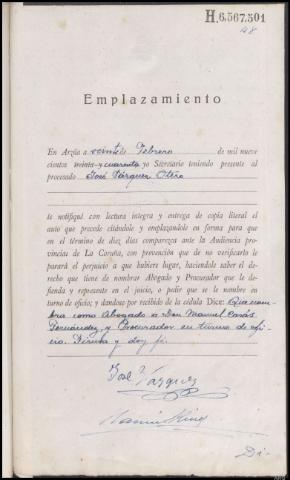 H.6.567.501
48
Emplazamiento
En Arzúa a veinte de Febrero de mil nueve
cientos treinta y cuarenta yo Secretario teniendo presente al
procesado José Vázquez Otero
le notifiqué con lectura íntegra y entrega de copia literal el
auto que precede citándole y emplazándole en forma para que
en el término de diez días comparezca ante la Audiencia pro-
vincias de La Coruña, con prevención que de no verificarlo le
parará el perjuicio a que hubiera lugar, haciéndole saber el de-
recho que tiene de nombrar Abogado y Procurador que le de-
fienda y represente en el juicio, o pedir que se le nombre en
turno de oficio; y dandose por recibido de la cédula Dice: Que nom-
bra como Abogado a Don Manuel Casás
Fernández y Procurador en turno de ofi-
cio. Firma y doy fe.
José Vázquez
Di-